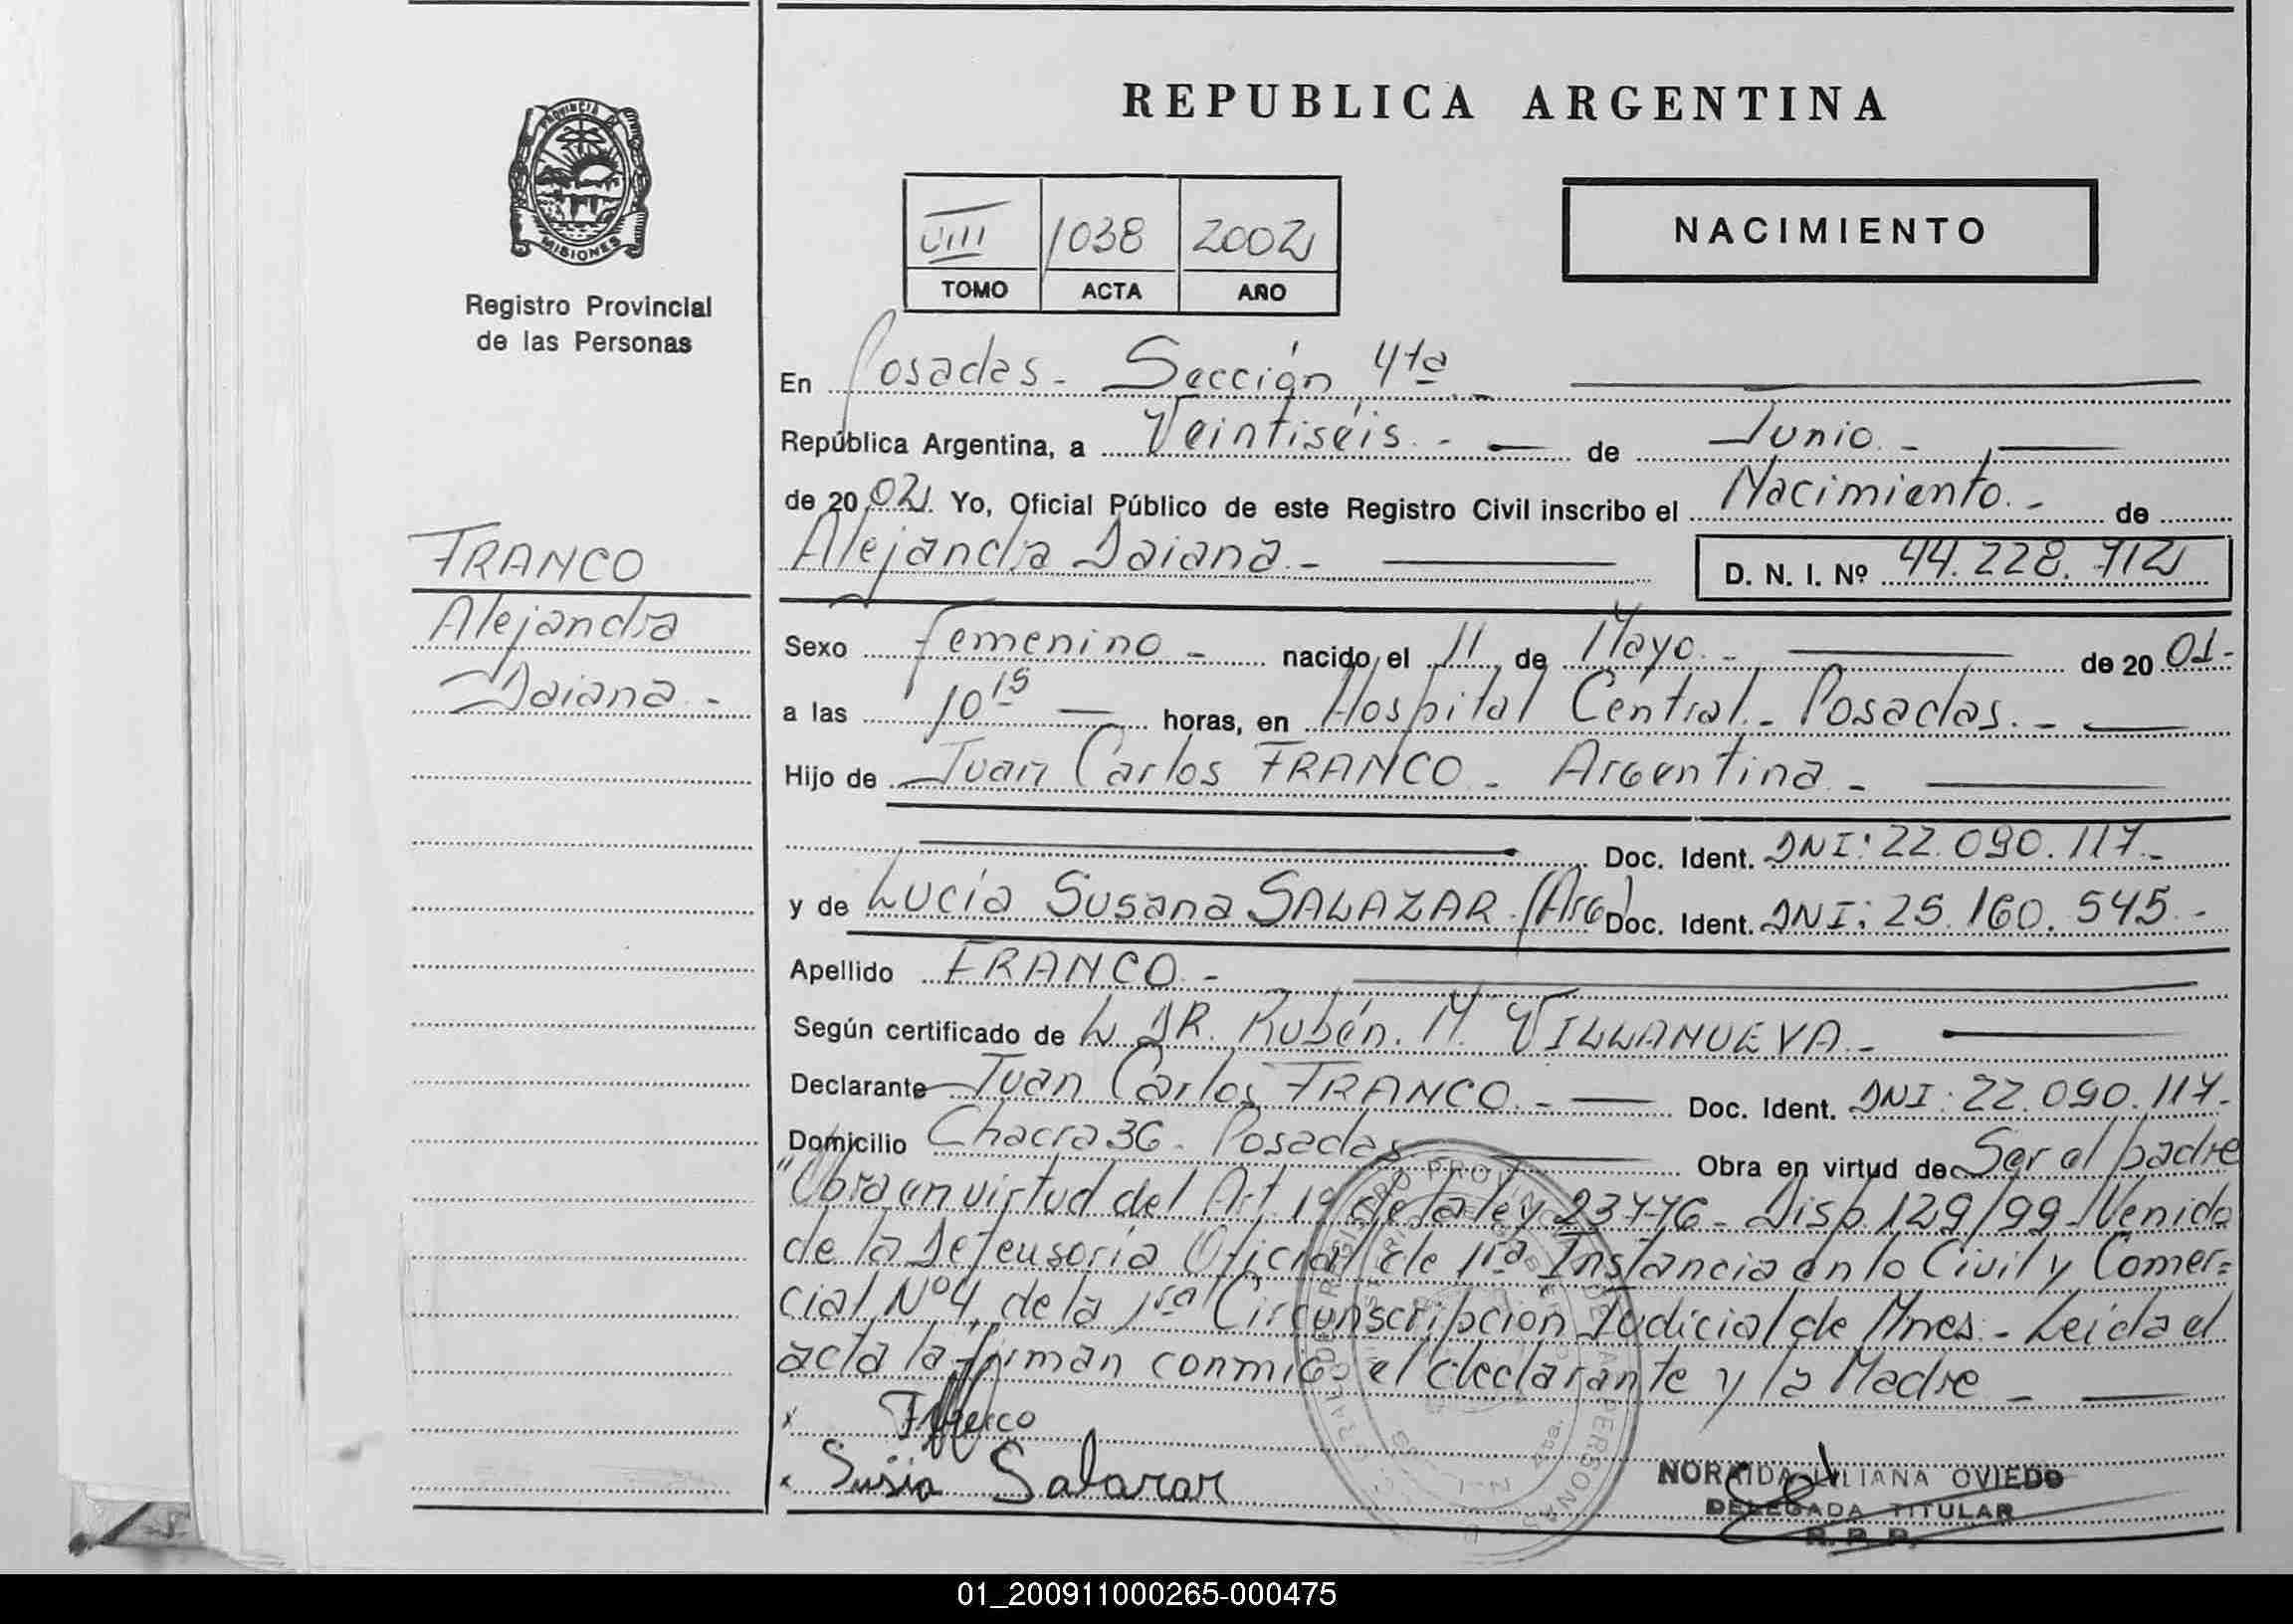 PROVINCIA DE
MISIONES
Registro Provincial
de las Personas
FRANCO
Alejandra
Daiana.-
REPUBLICA ARGENTINA
VIII 1038 2002
TOMO ACTA AÑO
NACIMIENTO
En Posadas- Sección 4ta.-
República Argentina, a Veintiséis.- de Junio.-
de 2002. Yo, Oficial Público de este Registro Civil inscribo el Nacimiento.- de
Alejandra Daiana.- D. N. I. Nº 44.228.712
Sexo femenino- nacido el 11 de Mayo.- de 2001.-
a las 10 15 horas, en Hospital Central.- Posadas.-
Hijo de Juan Carlos FRANCO- Argentina.-
Doc. Ident. DNI: 22.090.117.-
y de Lucía Susana SALAZAR.(Arg) Doc. Ident. DNI: 25.160.545.-
Apellido FRANCO.-
Según certificado de L. DR. Rubén. M. VILLANUEVA.-
Declarante Juan Carlos FRANCO.- Doc. Ident. DNI: 22.090.117.-
Domicilio Chacra 36- Posadas Obra en virtud de Ser el padre
"Obra en virtud del Art. 1º de la ley 23776- Disp. 129/99-Venido
de la Defensoria Oficial de 1ra Instancia en lo Civil y Comer=
cial Nº4, de la 1ra Circunscripcion Judicial de Mnes.- Leida el
acta la firman conmigo el declarante y la Madre-
x Franco
x Susia Salazar
NORAIDA LILIANA OVIEDO
DELEGADA TITULAR
R. P. P.
01_200911000265-000475